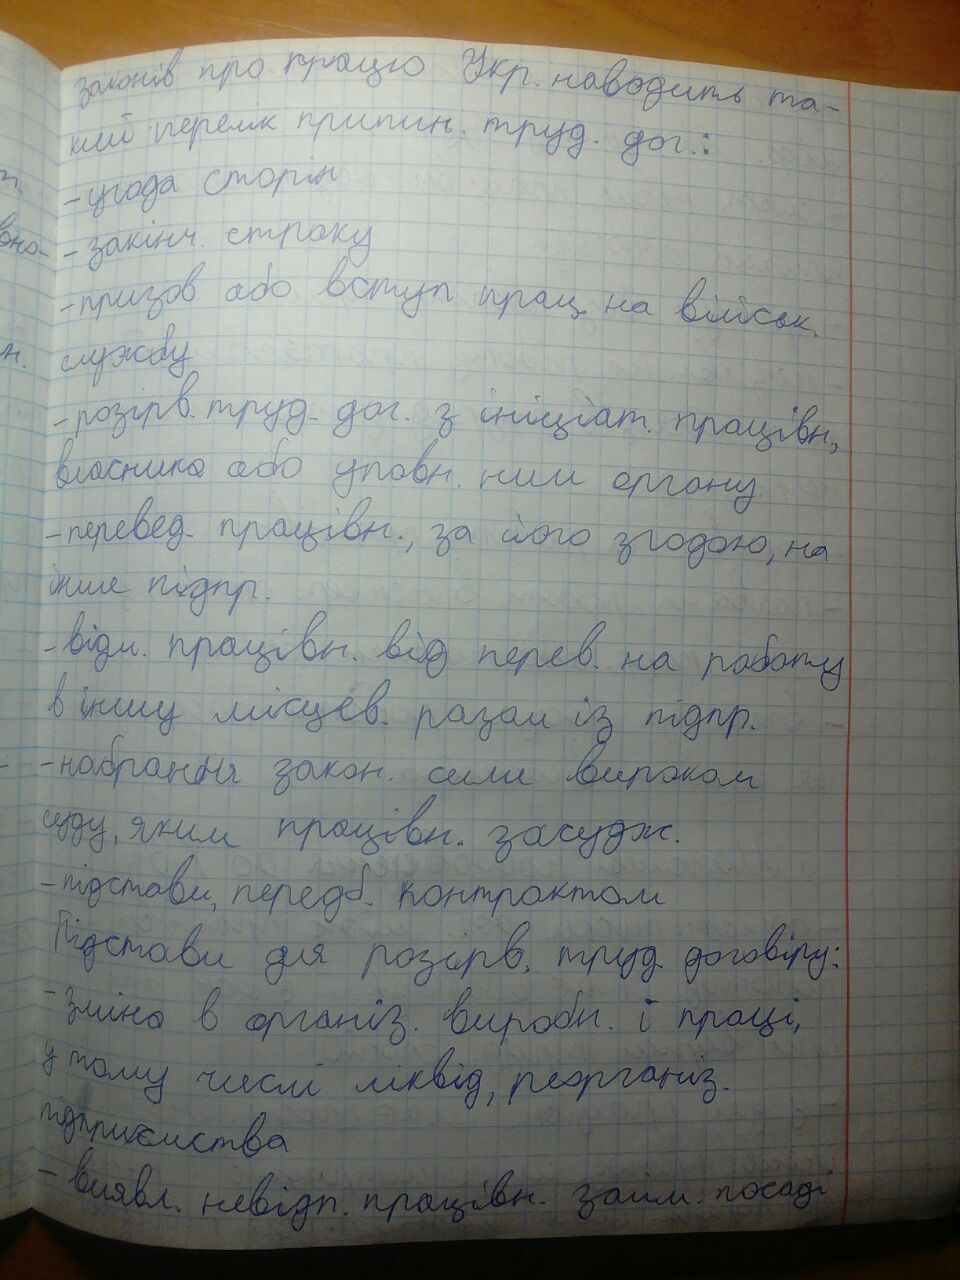 законів про працю Укр. наводить та-
кий перелік припин. труд. дог.:
- угода сторін
- закінч. строку
- призов або вступ прац. на військ.
службу
- розірв. труд. дог. з ініціат. працівн.,
власника або уповн. ним органу
- перевед. працівн., за його згодою, на
інше підпр.
- відм. працівн. від перев. на роботу
в іншу місцев. разом із підпр.
- набрання закон. сили вироком
суду, яким працівн. засудж.
- підстави, передб. контрактом
Підстави для розірв. труд. договіру:
- зміна в організ. виробн. і праці,
у тому числі ліквід, реорганіз.
підприємства
- виявл. невідп. працівн. займ. посаді